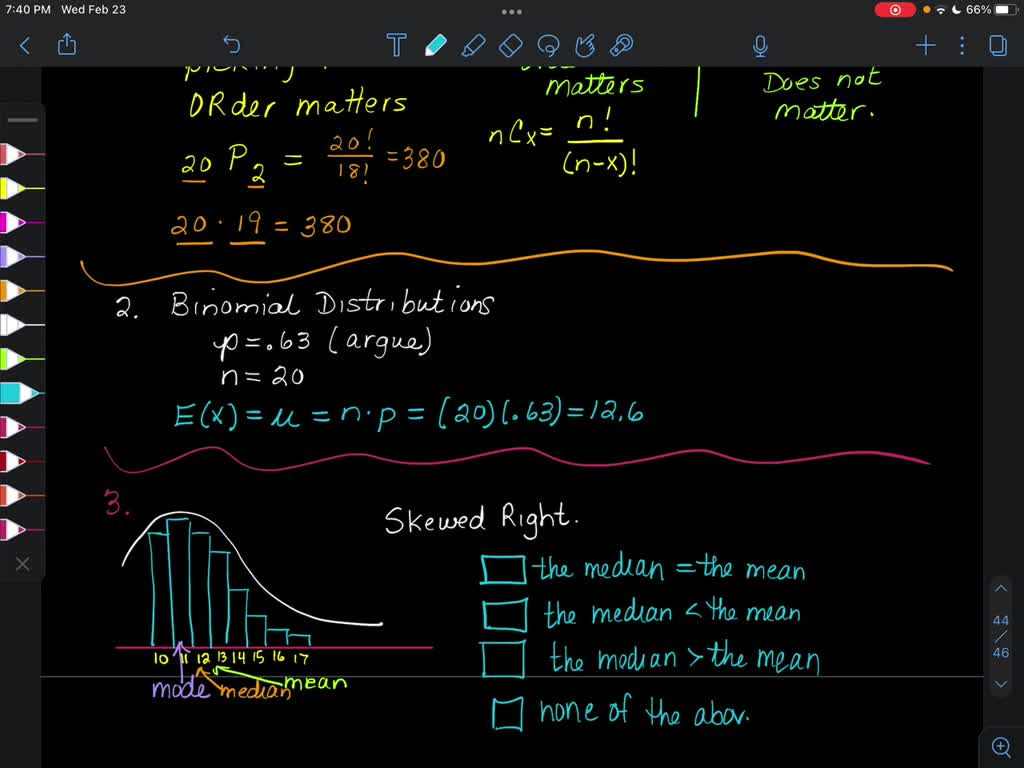 7:40 PM Wed Feb 23
66%
picking
ORder matters
matters
Does not
matter.
20 P 2 = 20!/18! = 380
nCx = n!/(n-x)!
20 · 19 = 380
2. Binomial Distributions
p = .63 (argue)
n = 20
E(x) = μ = n·p = (20)(.63) = 12.6
3.
Skewed Right.
the median = the mean
the median < the mean
the median > the mean
none of the abov.
10 11 12 13 14 15 16 17
mode median mean
44
46